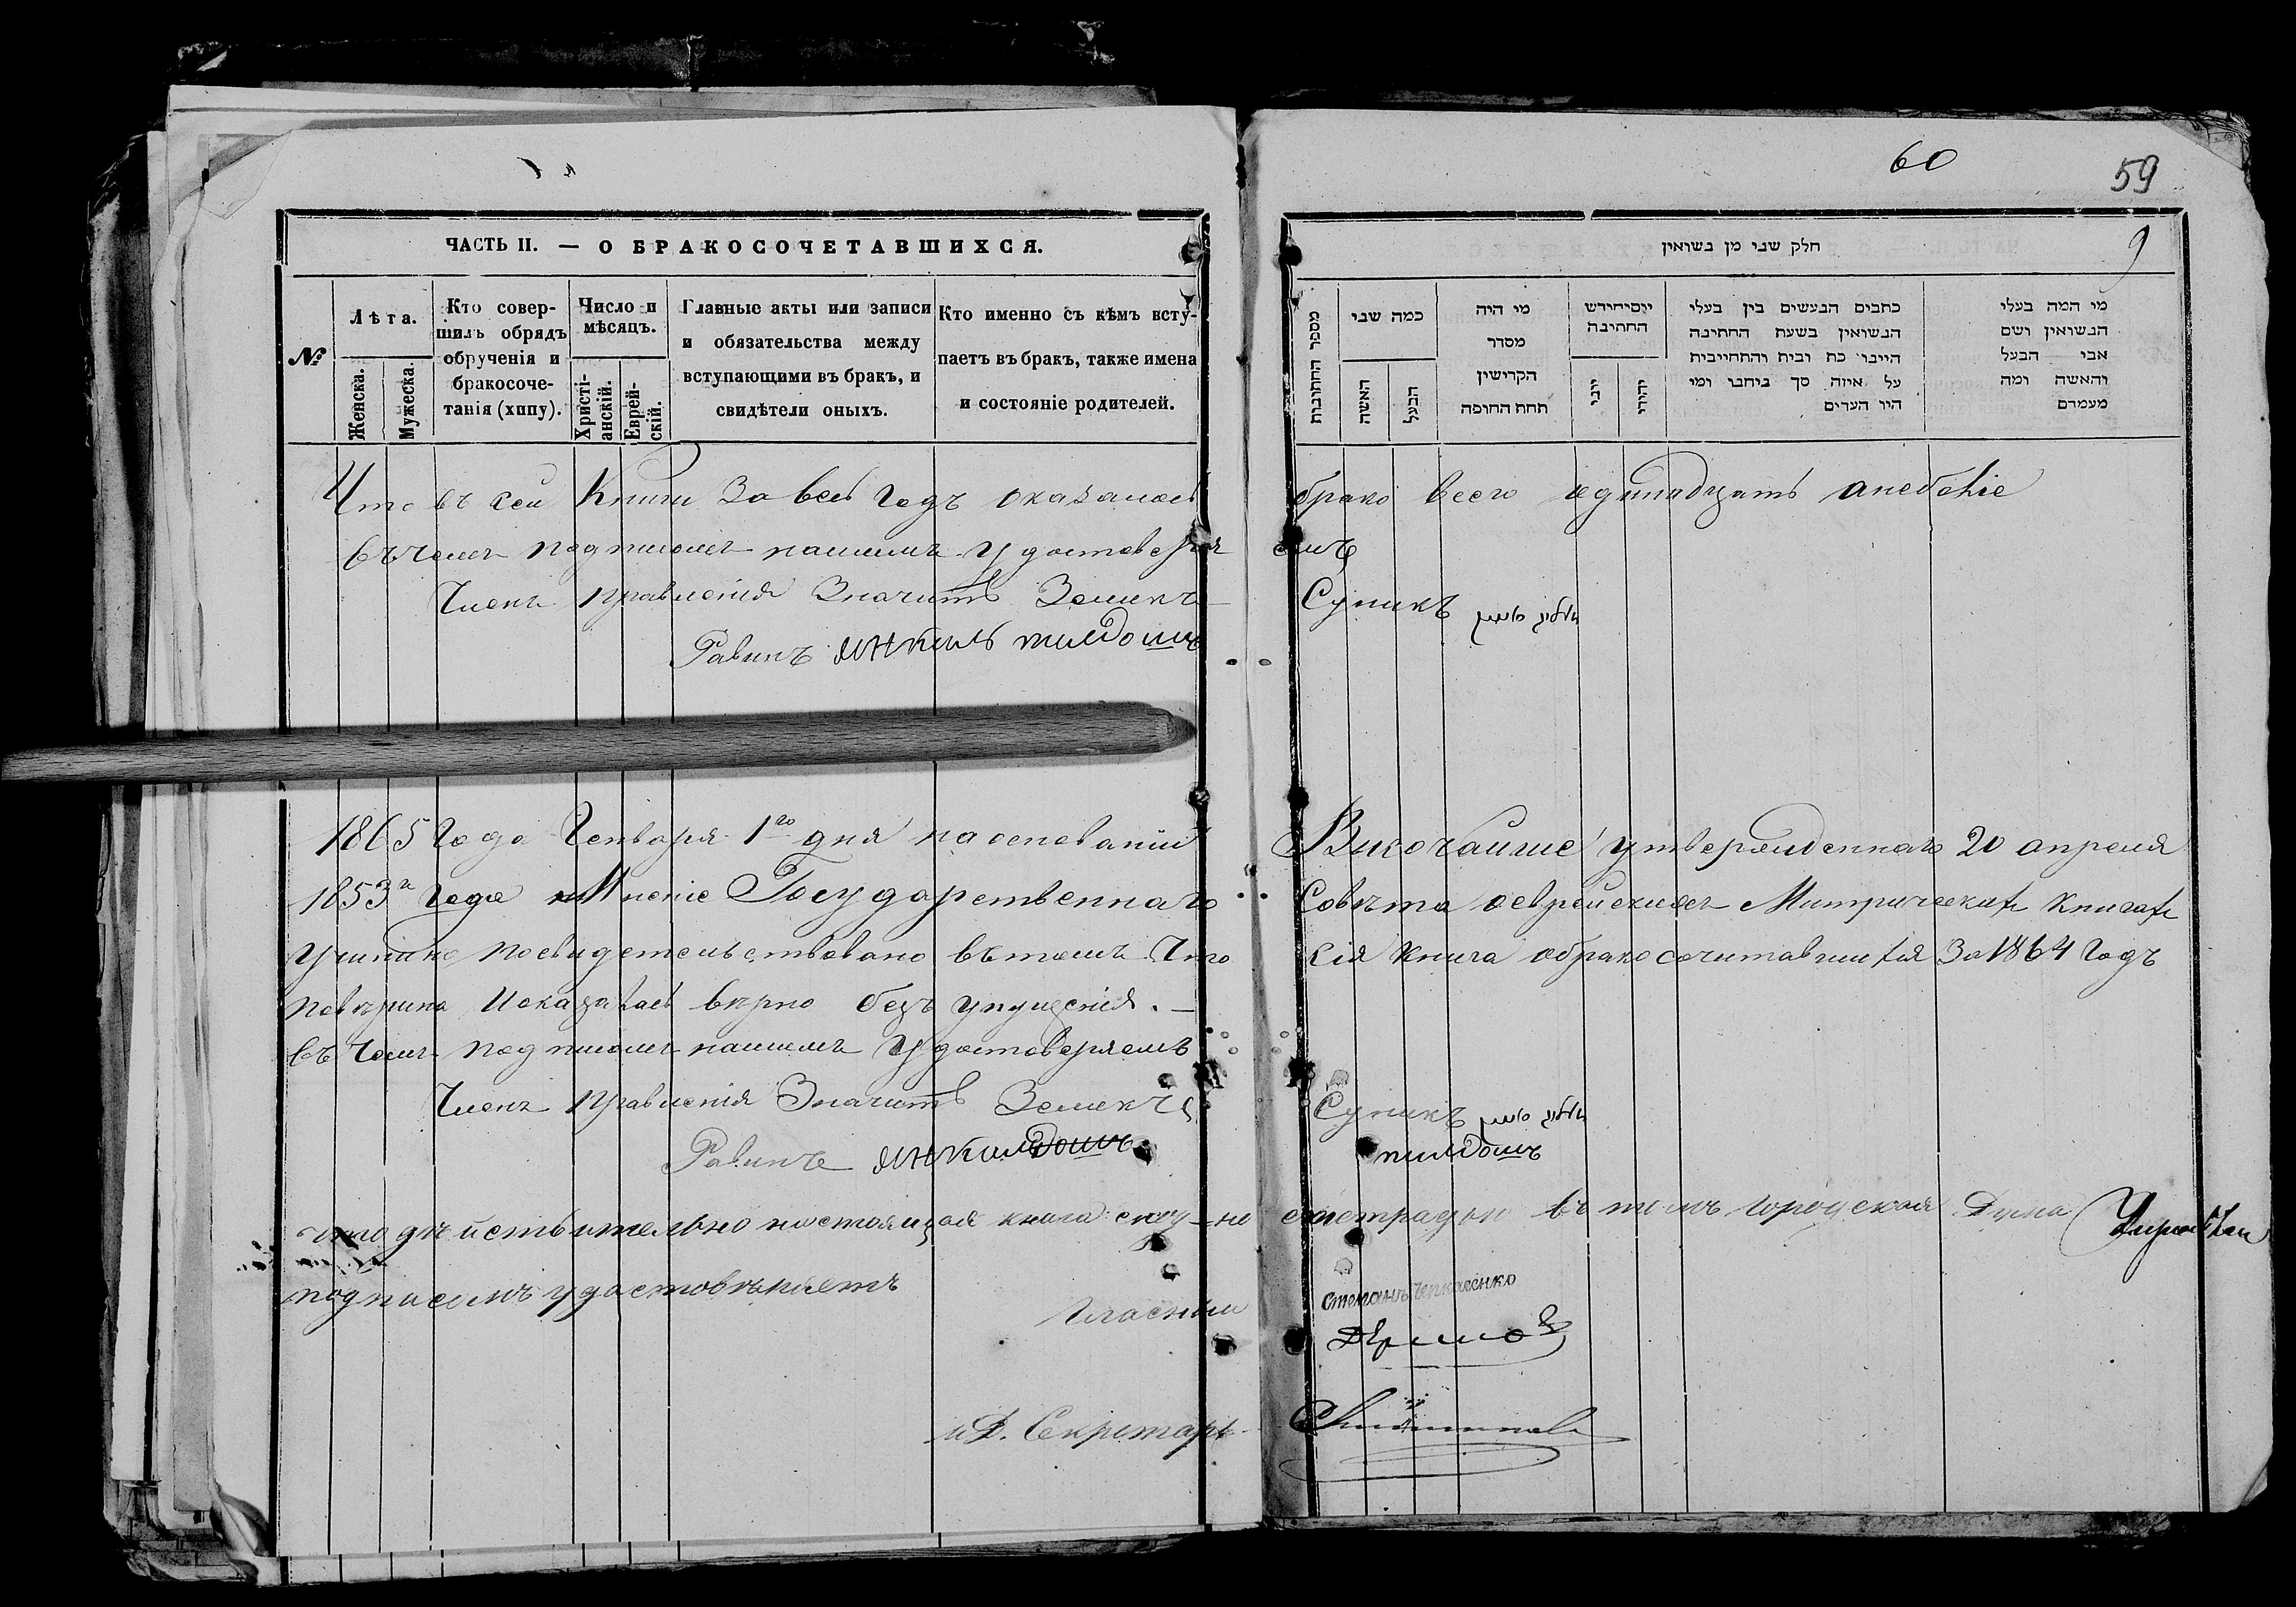 60
59
9
ЧАСТЬ II. — О БРАКОСОЧЕТАВШИХСЯ.
№
Лѣта.
Женска.
Мужеска.
Кто совер-
шилъ обрядъ
обрученія и
бракосоче-
танія (хипу).
Число и
мѣсяцъ.
Христі-
анскій.
Еврей-
скій.
Главные акты или записи
и обязательства между
вступающими въ брак, и
свидѣтели оныхъ.
Кто именно съ кѣмъ всту-
паетъ въ бракъ, также имена
и состояніе родителей.
חלק שני מן נשואין
מספר החתונות
כמה שני
האשה
הבעל
מי היה
מסדר
הקדישין
תחת החופה
יום וחידש
החתונה
ייני
יהודי
כתבים הנעשים בין בעלי
הנשואין בשעת החתונה
היינו כת ובית והתחייבית
על איזה סך ביחבו ומי
היו העדים
מי המה בעלי
הנשואין ושם
אבי הבעל
והאשה ומה
מעמדם
Что въ сей Книги За весь годъ оказалось брако всего одинадцать
въ чемъ подписомъ нашимъ удостоверяемъ
Членъ правленія Значитъ Зелекъ Супикъ
Равинъ Янкиль
1865 Года Генваря 1го дня на основаніи Височайше утвержденнаго 20 апреля
1853г Года Мненіе Государственнаго Совѣта оеврейскихъ Митрическихъ Книгахъ
учинено посвидетельствовано въ томъ Что Сія Книга обракосочитавшихся За 1864 Годъ
поверина Иоказалась вѣрно безъ упущенія. —
въ чемъ подписомъ нашимъ Удостоверяемъ
Членъ правленія Значитъ Зелекъ Супикъ
Равинъ
что дѣйствительно настоящая книга въ Городская Дума
подписомъ удостовѣряетъ
Гласный Степанъ Черкасенко
и.д. Секретарь